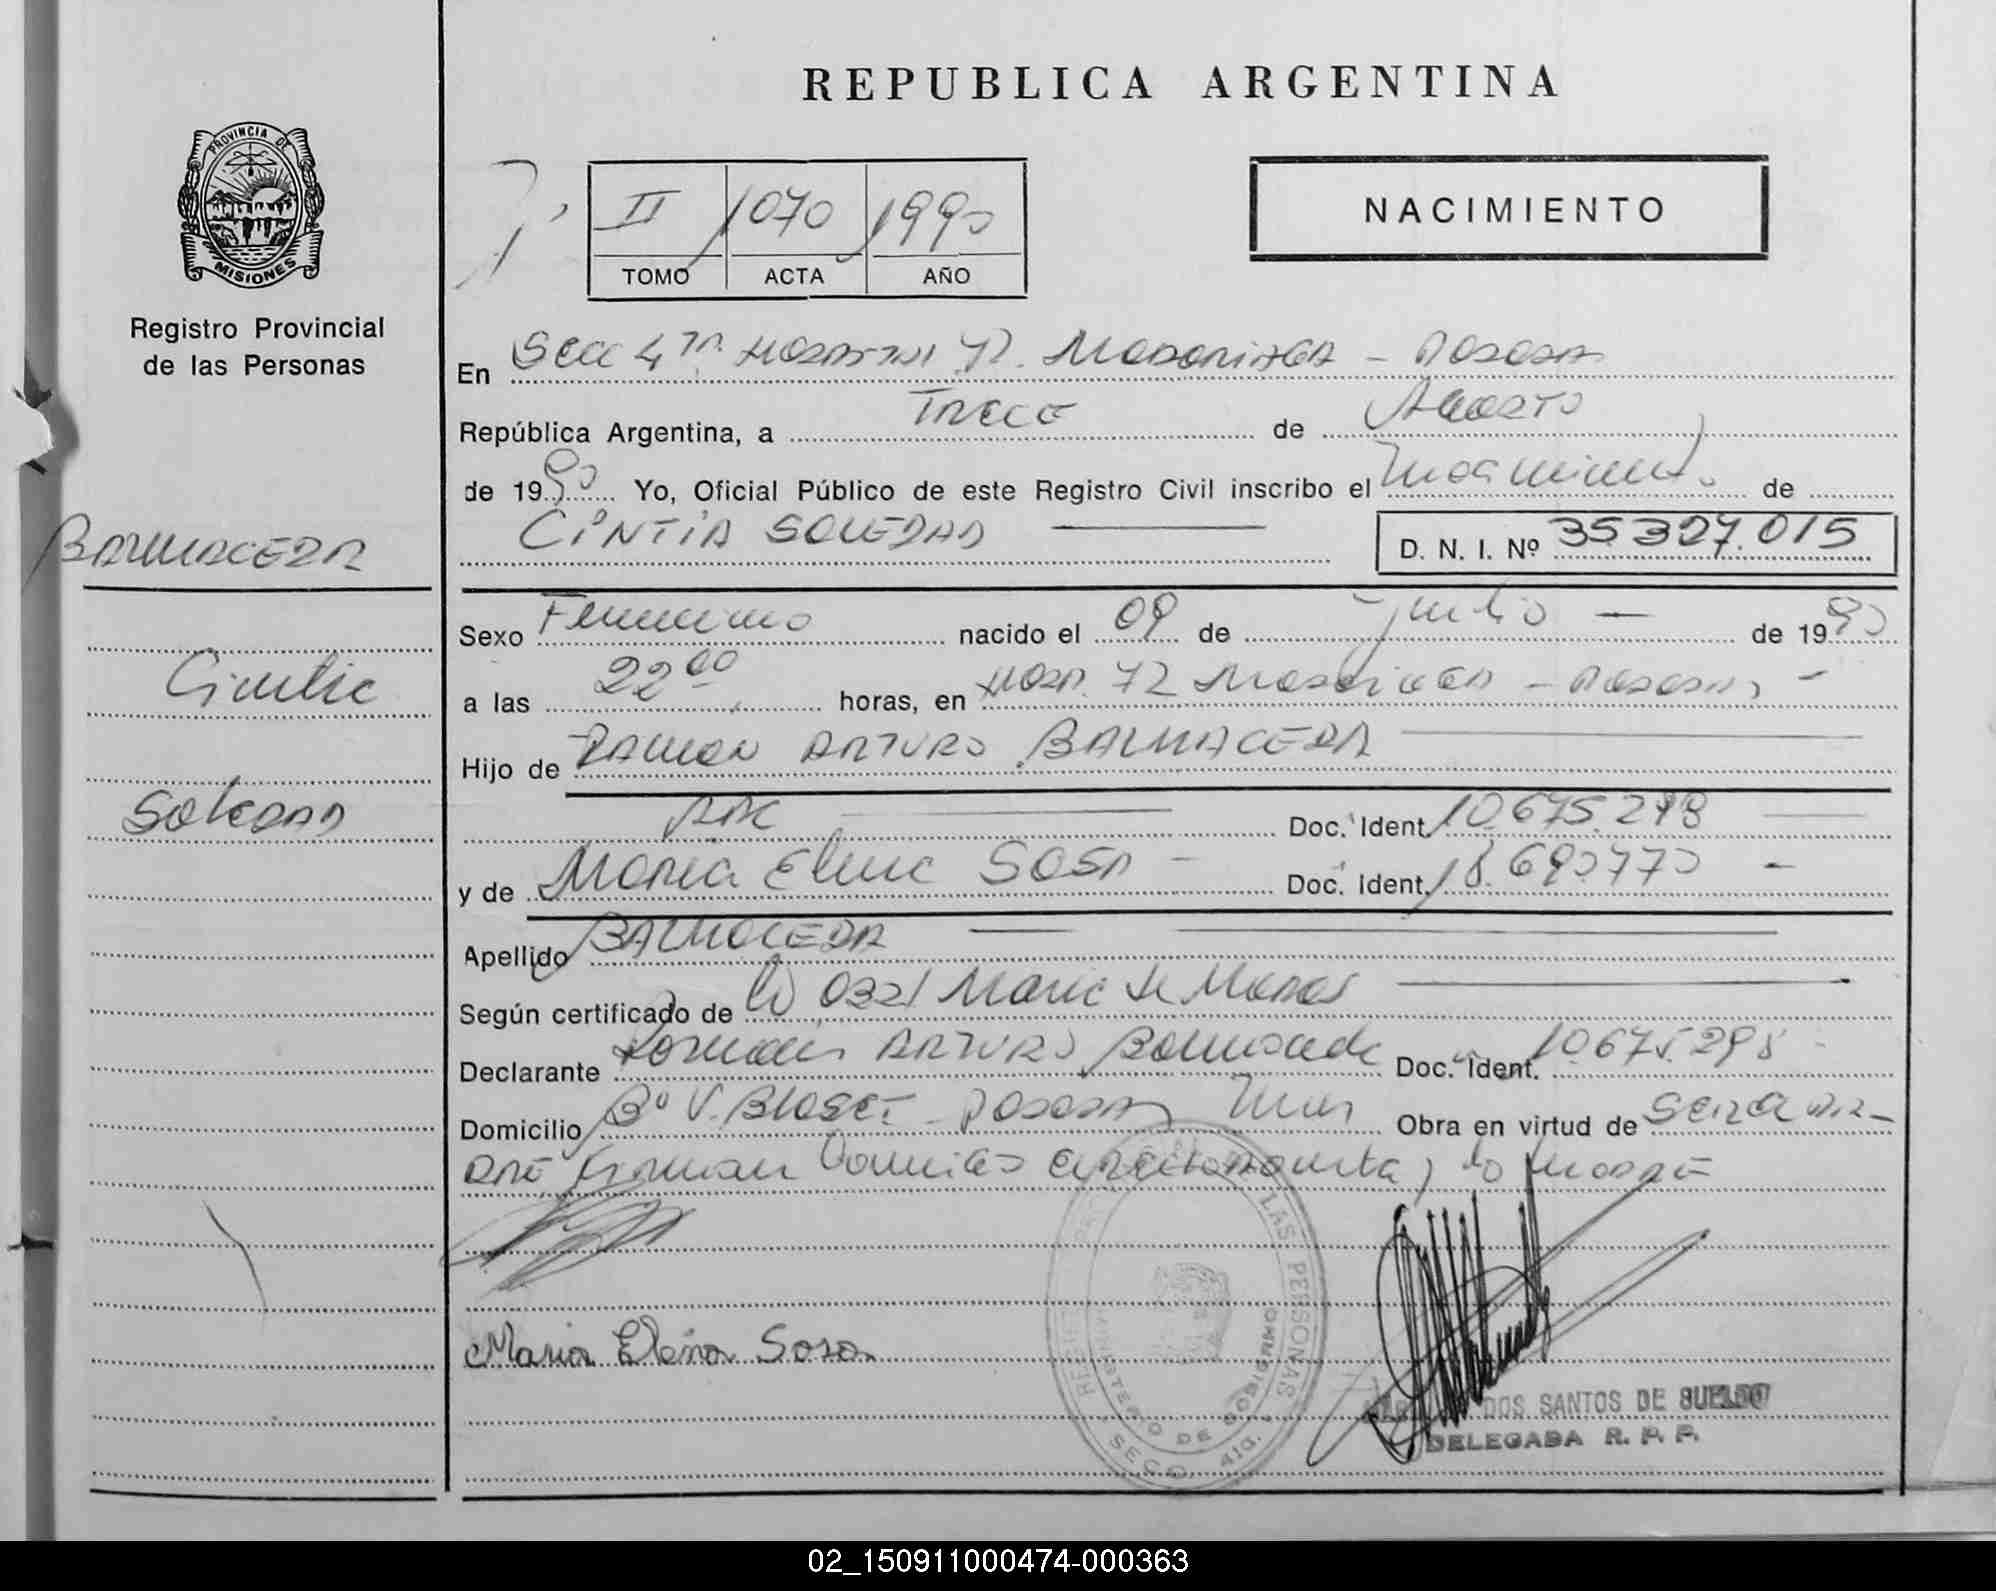 REPUBLICA ARGENTINA
PROVINCIA DE
MISIONES
Registro Provincial
de las Personas
II 1070 1990
TOMO ACTA AÑO
NACIMIENTO
En Secc 4ta Hospital R. Madariaga - Posadas
República Argentina, a Trece de Agosto
de 1990 Yo, Oficial Público de este Registro Civil inscribo el Nacimiento de
CINTIA SOLEDAD D. N. I. Nº 35327.015
BALMACEDA
Cintia
Soledad
Sexo Femenino nacido el 09 de de 1990
a las 22 00 horas, en Hosp. R Madariaga - Posadas
Hijo de RAMON ARTURO BALMACEDA
Doc. Ident. 10.675.298
y de Maria Elena SOSA Doc. Ident. 18.690.770
Apellido BALMACEDA
Según certificado de
Declarante Ramon ARTURO Balmaceda Doc. Ident. 10.675.298
Domicilio Bº Posadas Obra en virtud de ser el pa-
dre Firman la madre
Maria Elena Sosa
DE LAS PERSONAS
MINISTERIO DE GOBIERNO
SECC. 4ta.
DOS SANTOS DE SUELDO
DELEGADA R. P. P.
02_150911000474-000363